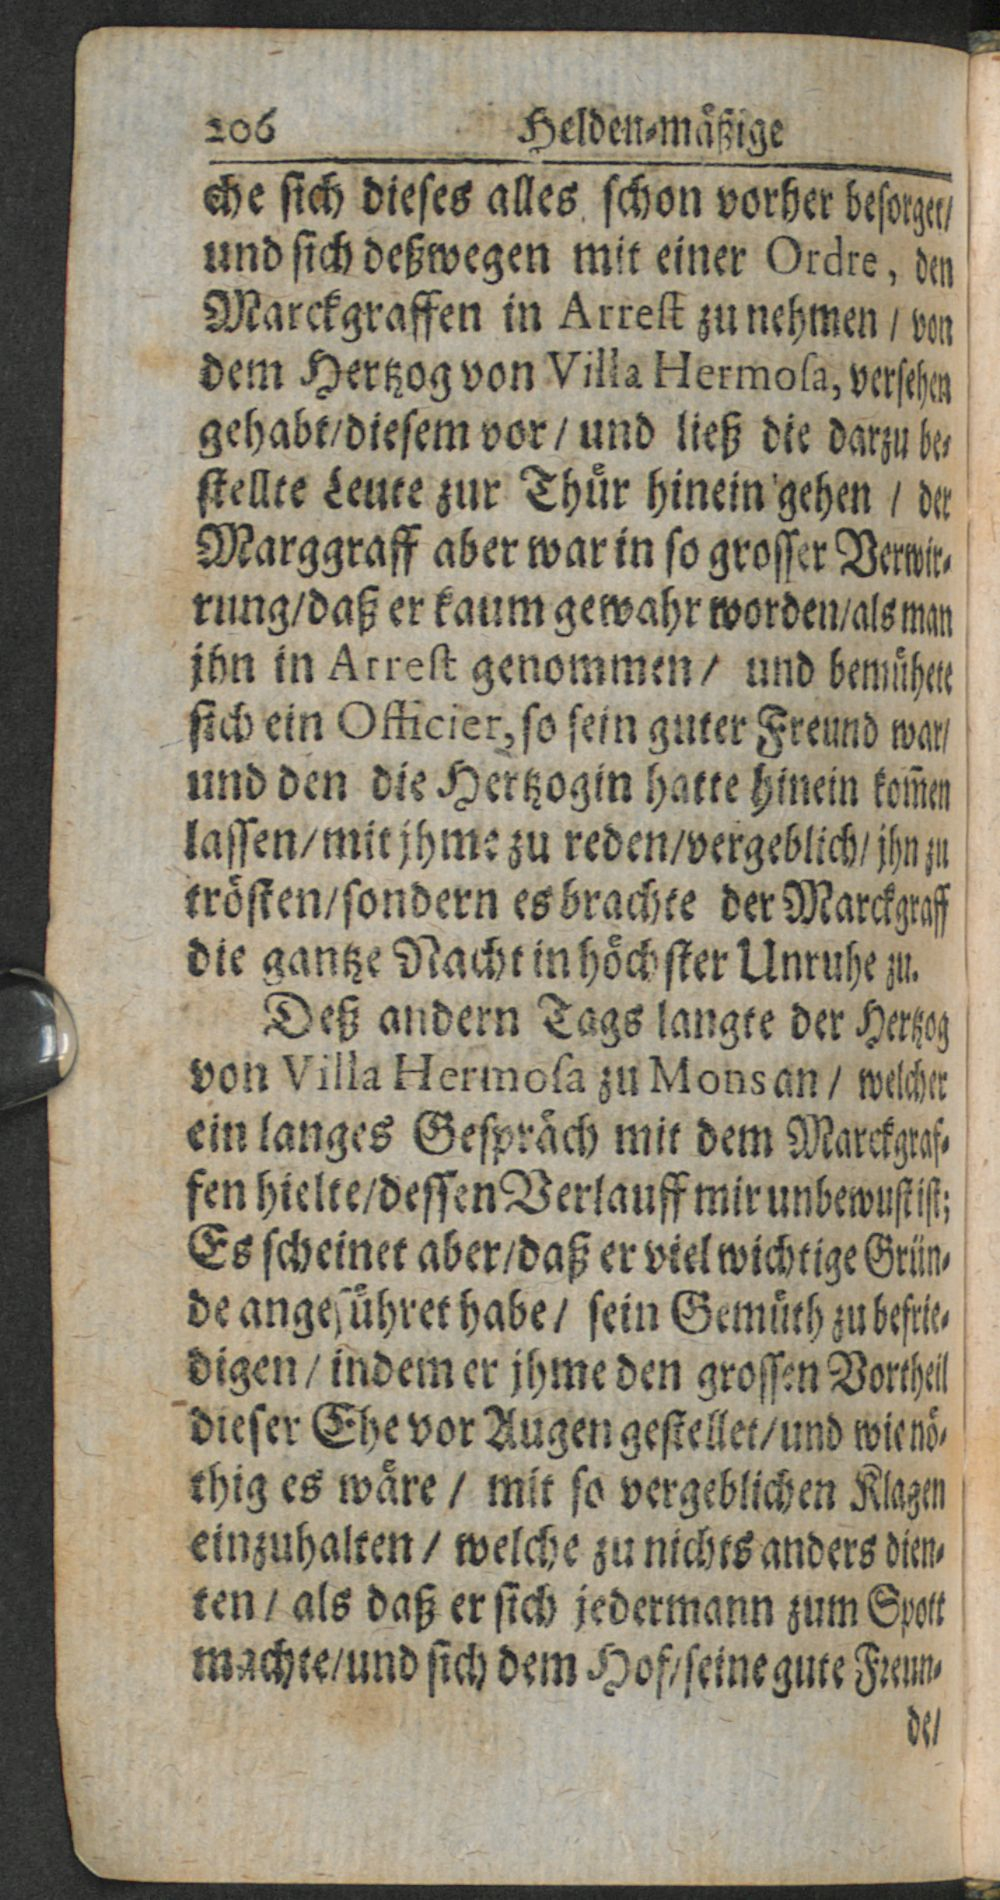 206 Helden-mäßige
che sich dieses alles schon vorher besorget/
und sich deßwegen mit einer Ordre, den
Marckgraffen in Arrest zu nehmen / von
dem Hertzog von Villa Hermosa, versehen
gehabt/diesem vor / und ließ die darzu be-
stellte Leute zur Thür hinein gehen / der
Marggraff aber war in so grosser Verwir-
rung/daß er kaum gewahr worden/als man
jhn in Arrest genommen / und bemühete
sich ein Officier, so sein guter Freund war/
und den die Hertzogin hatte hinein kom̄en
lassen/mit jhme zu reden/vergeblich/ jhn zu
trösten/sondern es brachte der Marckgraff
die gantze Nacht in höchster Unruhe zu.
Deß andern Tags langte der Hertzog
von Villa Hermosa zu Mons an / welcher
ein langes Gespräch mit dem Marckgraf-
fen hielte/dessen Verlauff mir unbewust ist;
Es scheinet aber/daß er viel wichtige Grün-
de angeführet habe / sein Gemüth zu befrie-
digen / indem er jhme den grossen Vortheil
dieser Ehe vor Augen gestellet/und wie nö-
thig es wäre / mit so vergeblichen Klagen
einzuhalten / welche zu nichts anders dien-
ten / als daß er sich jedermann zum Spott
machte/und sich dem Hof/seine gute Freun-
de/